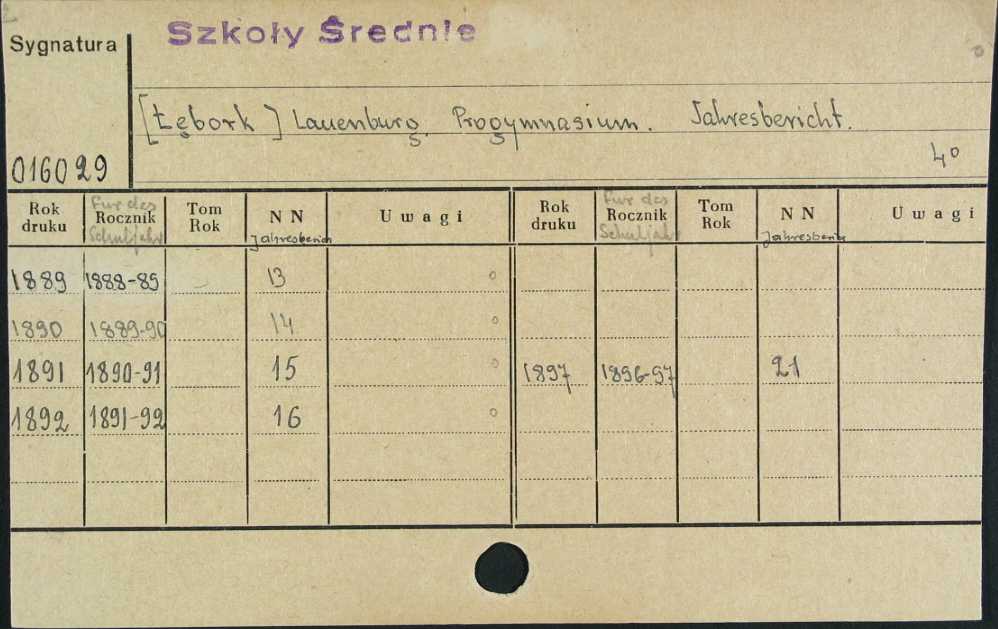 Szkoły Średnie
Sygnatura
[Łębork] Lauenburg. Progymnasium. Jahresbericht.
4°
016029
Rok druku Für das Rocznik Schuljahr Tom Rok NN Jahresbericht Uwagi Rok druku Für das Rocznik Schuljahr Tom Rok NN Jahresbericht Uwagi
1889 1888-89 13
1890 1889-90 14
1891 1890-91 15 1897 1896-97 21
1892 1891-92 16